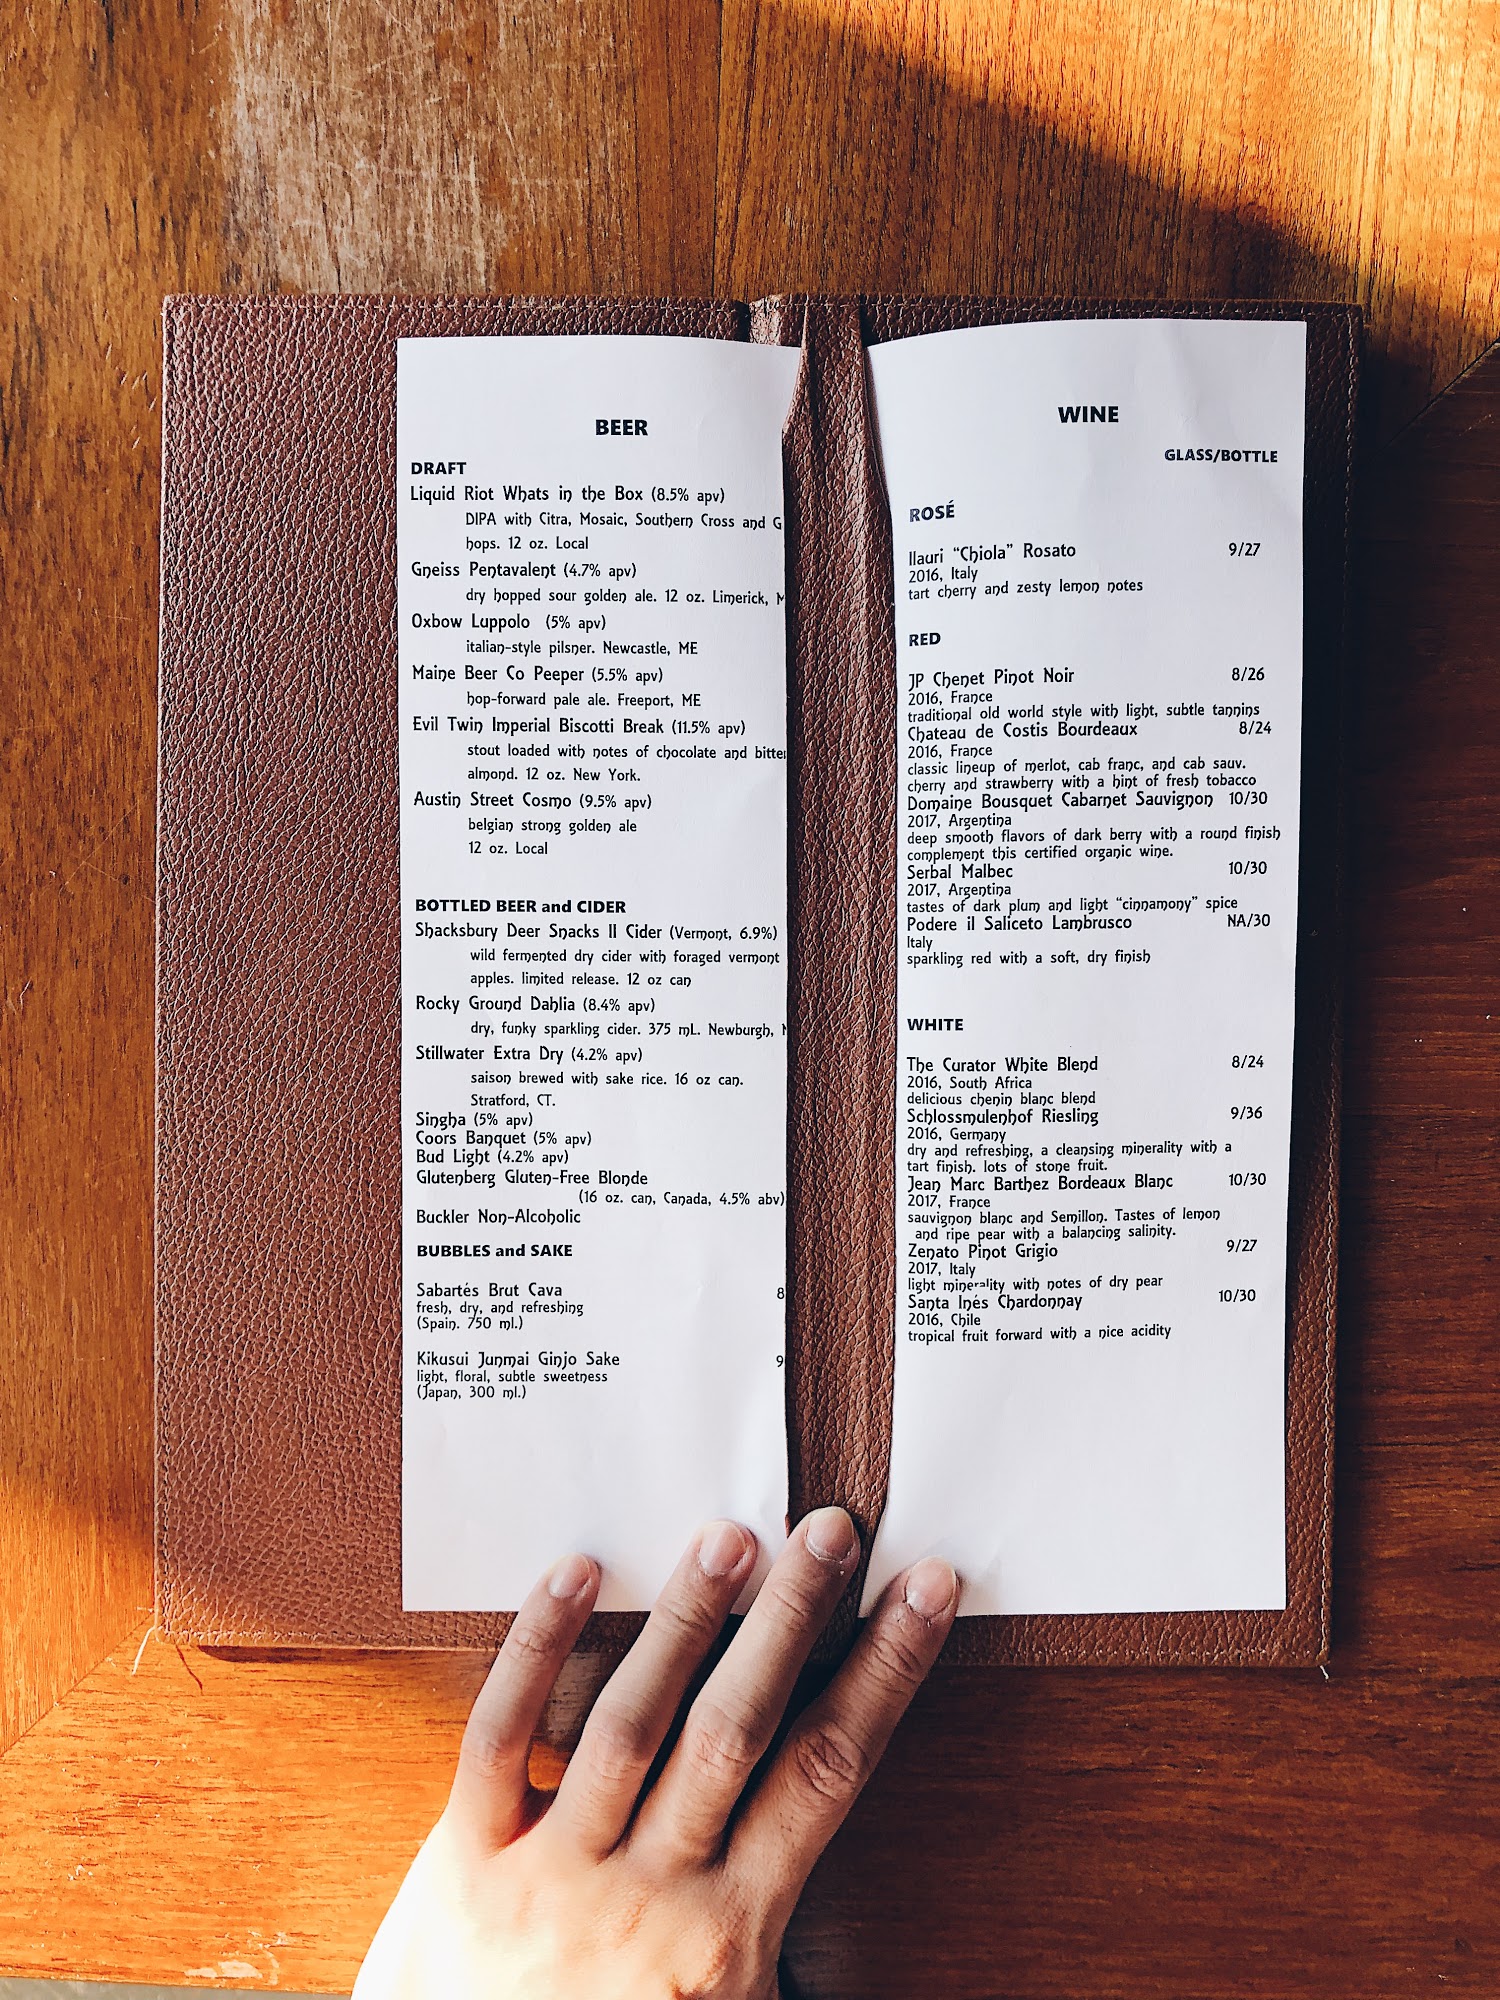 BEER
DRAFT
Liquid Riot Whats in the Box (8.5% apv)
DIPA with Citra, Mosaic, Southern Cross and G
hops. 12 oz. Local
Gneiss Pentavalent (4.7% apv)
dry hopped sour golden ale. 12 oz. Limerick, M
Oxbow Luppolo (5% apv)
italian-style pilsner. Newcastle, ME
Maine Beer Co Peeper (5.5% apv)
hop-forward pale ale. Freeport, ME
Evil Twin Imperial Biscotti Break (11.5% apv)
stout loaded with notes of chocolate and bitter
almond. 12 oz. New York.
Austin Street Cosmo (9.5% apv)
belgian strong golden ale
12 oz. Local
BOTTLED BEER and CIDER
Shacksbury Deer Snacks II Cider (Vermont, 6.9%)
wild fermented dry cider with foraged vermont
apples. limited release. 12 oz can
Rocky Ground Dahlia (8.4% apv)
dry, funky sparkling cider. 375 mL. Newburgh,
Stillwater Extra Dry (4.2% apv)
saison brewed with sake rice. 16 oz can.
Stratford, CT.
Singha (5% apv)
Coors Banquet (5% apv)
Bud Light (4.2% apv)
Glutenberg Gluten-Free Blonde
(16 oz. can, Canada, 4.5% abv)
Buckler Non-Alcoholic
BUBBLES and SAKE
Sabartés Brut Cava 8
fresh, dry, and refreshing
(Spain. 750 ml.)
Kikusui Junmai Ginjo Sake 9
light, floral, subtle sweetness
(Japan, 300 ml.)
WINE
GLASS/BOTTLE
ROSÉ
Ilauri “Chiola” Rosato 9/27
2016, Italy
tart cherry and zesty lemon notes
RED
JP Chenet Pinot Noir 8/26
2016, France
traditional old world style with light, subtle tannins
Chateau de Costis Bourdeaux 8/24
2016, France
classic lineup of merlot, cab franc, and cab sauv.
cherry and strawberry with a hint of fresh tobacco
Domaine Bousquet Cabarnet Sauvignon 10/30
2017, Argentina
deep smooth flavors of dark berry with a round finish
complement this certified organic wine.
Serbal Malbec 10/30
2017, Argentina
tastes of dark plum and light “cinnamony” spice
Podere il Saliceto Lambrusco NA/30
Italy
sparkling red with a soft, dry finish
WHITE
The Curator White Blend 8/24
2016, South Africa
delicious chenin blanc blend
Schlossmulenhof Riesling 9/36
2016, Germany
dry and refreshing, a cleansing minerality with a
tart finish. lots of stone fruit.
Jean Marc Barthez Bordeaux Blanc 10/30
2017, France
sauvignon blanc and Semillon. Tastes of lemon
and ripe pear with a balancing salinity.
Zenato Pinot Grigio 9/27
2017, Italy
light minerality with notes of dry pear
Santa Inés Chardonnay 10/30
2016, Chile
tropical fruit forward with a nice acidity